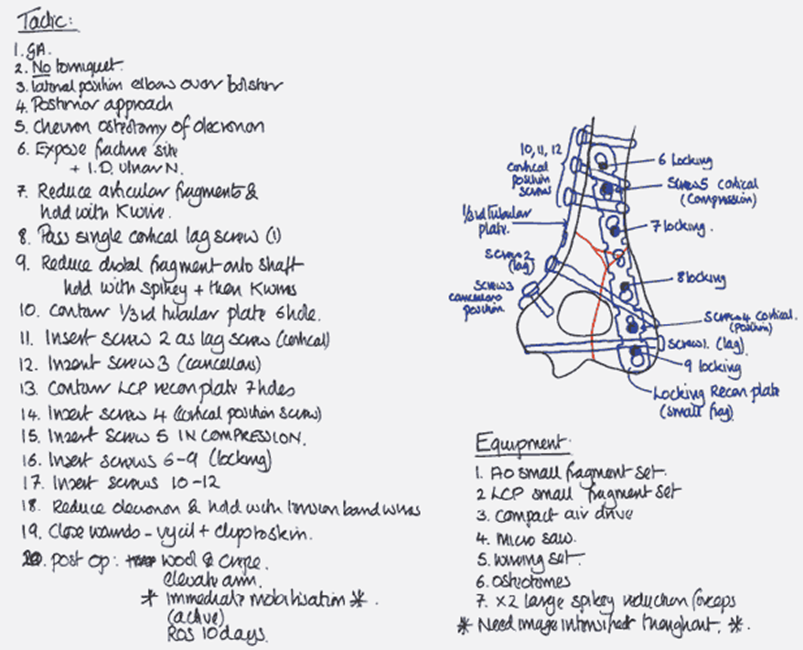 Tactic:
1. GA.
2. No torniquet.
3. lateral position elbow over bolster
4. Posterior approach
5. Chevron osteotomy of olecranon
6. Expose fracture site
+ I.D. Ulnar N.
7. Reduce articular fragments &
hold with K wire.
8. Pass single cortical lag screw (1)
9. Reduce distal fragment onto shaft
hold with spikey + then K wires
10. Contour 1/3rd tubular plate 6 hole.
11. Insert screw 2 as lag screw (cortical)
12. Insert screw 3 (cancellous)
13. Contour LCP recon plate 7 holes
14. Insert screw 4 (cortical position screw)
15. Insert screw 5 IN COMPRESSION.
16. Insert screws 6-9 (locking)
17. Insert screws 10-12
18. Reduce olecranon & hold with tension band wires
19. Close wounds - vycil + clips to skin.
20. Post op: wool & crepe.
elevate arm.
* Immediate mobilisation *.
(active)
ROS 10 days.
10, 11, 12
cortical
position
screws
1/3rd tubular
plate.
screw 2
(lag)
screw 3
cancellous
position
6 locking
screw 5 cortical
(compression)
7 locking.
8 locking
screw 4 cortical.
(position)
screw 1. (lag)
9 locking
Locking Recon plate
(small frag)
Equipment.
1. AO small fragment set.
2 LCP small fragment set
3. Compact air drive
4. Micro saw.
5. Wiring set.
6. Osteotomes
7. x2 large spikey reduction forceps
* Need image intensifier throughout. *.